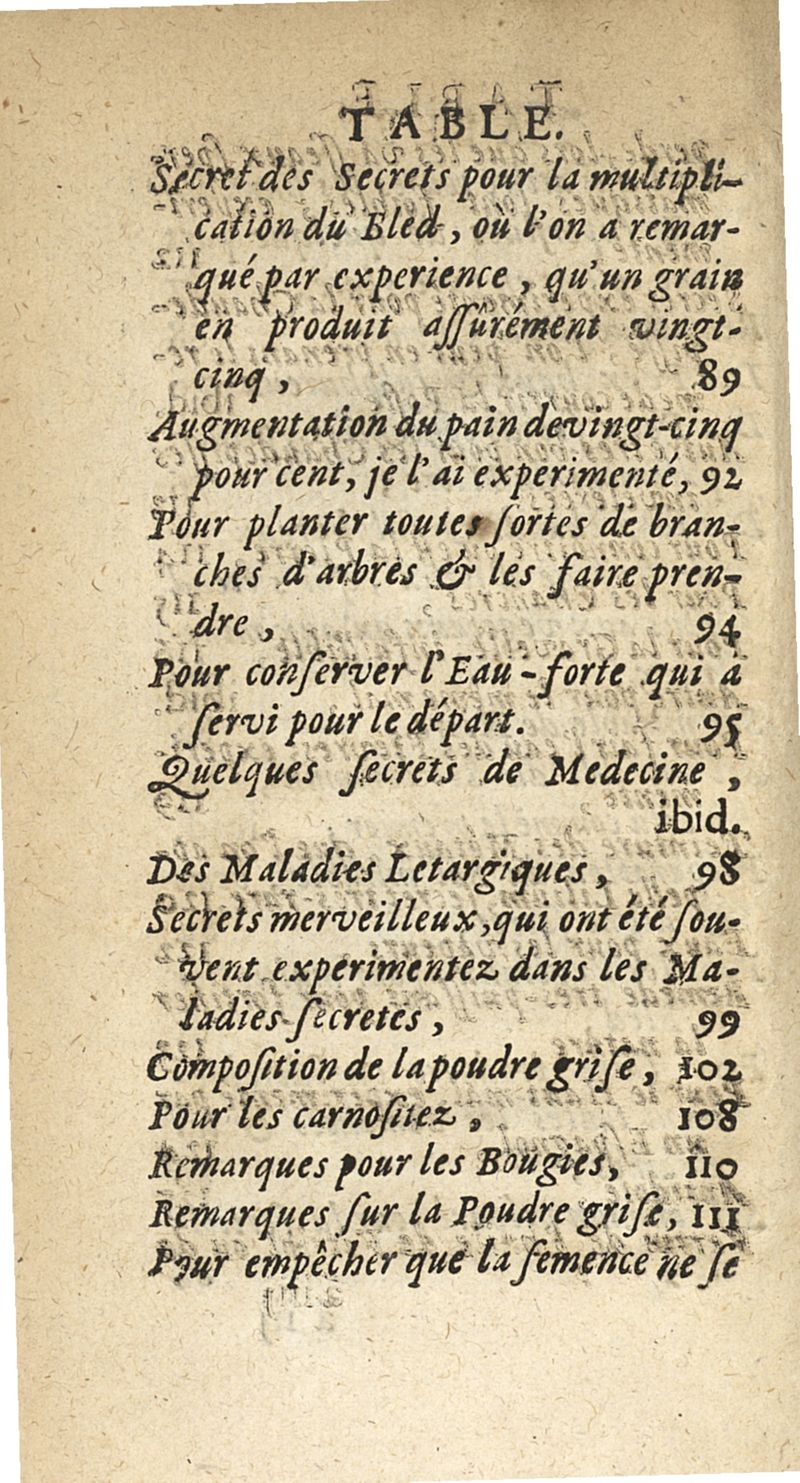 TABLE.
Secret des Secrets pour la multipli-
cation du Bled, où l'on a remar-
qué par experience, qu'un grain
en produit aſſûrément vingt-
cinq, 89
Augmentation du pain de vingt-cinq
pour cent, je l'ai experimenté, 92
Pour planter toutes ſortes de bran-
ches d'arbres & les faire pren-
dre, 94
Pour conſerver l'Eau-forte qui a
ſervi pour le départ. 95
Quelques ſecrets de Medecine,
ibid.
Des Maladies Letargiques, 98
Secrets merveilleux, qui ont été ſou-
vent experimentez dans les Ma-
ladies ſecretes, 99
Compoſition de la poudre griſe, 102
Pour les carnoſitez, 108
Remarques pour les Bougies, 110
Remarques ſur la Poudre griſe, 111
Pour empêcher que la ſemence ne ſe